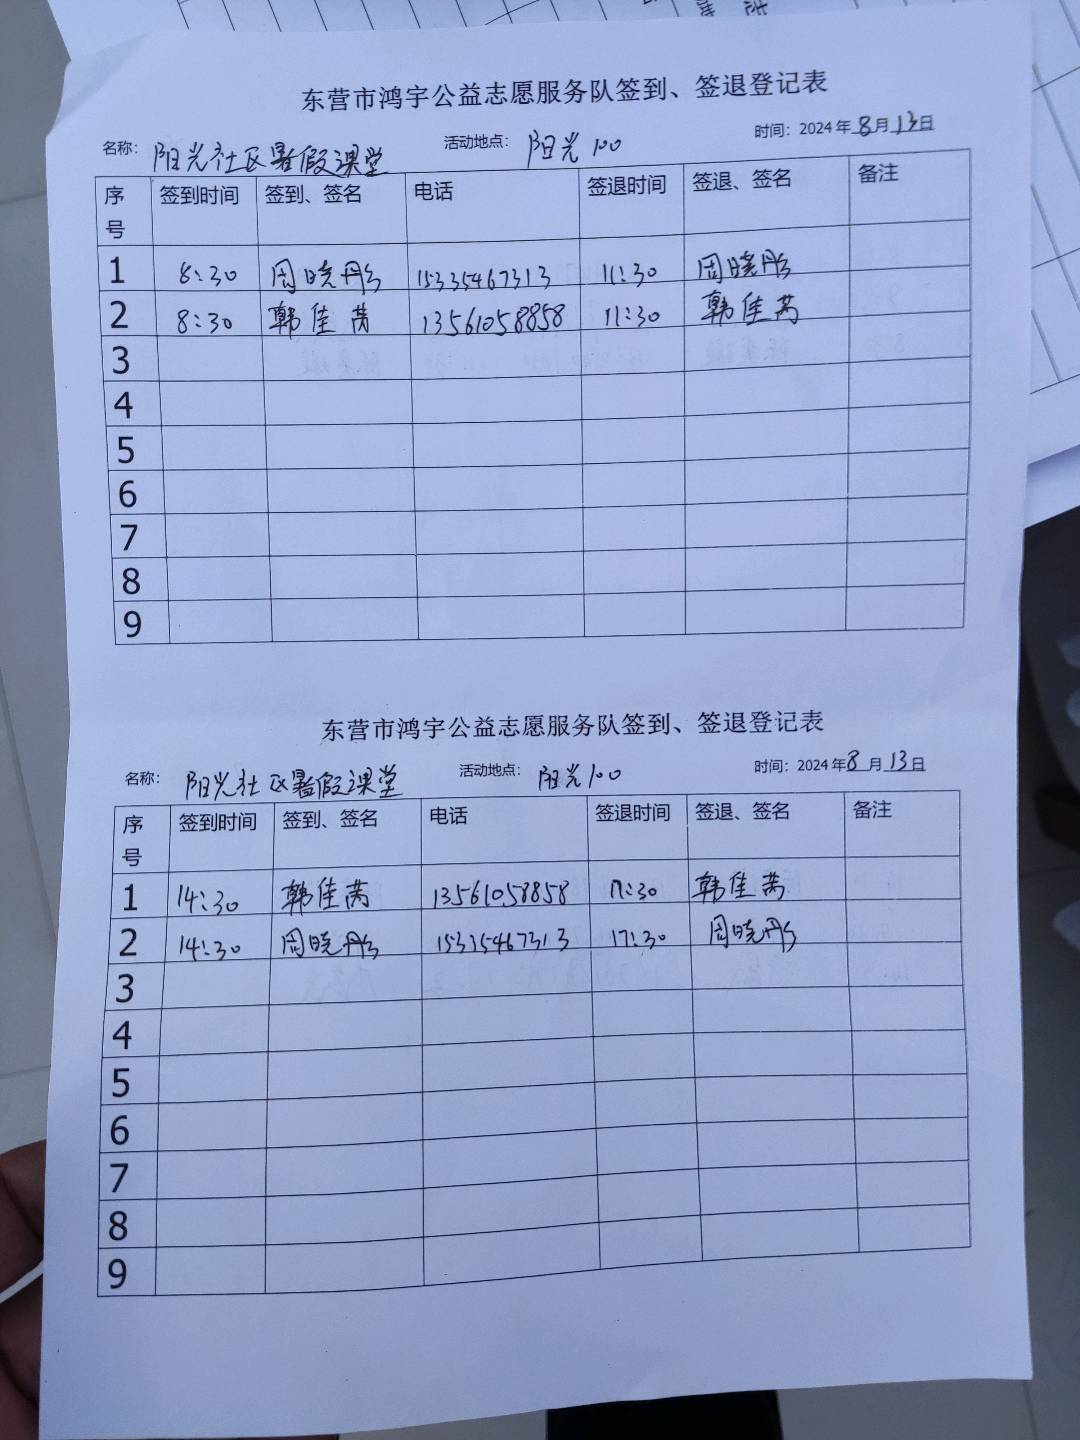 东营市鸿宇公益志愿服务队签到、签退登记表
名称： 阳光社区暑假课堂 活动地点： 阳光100 时间：2024年8月13日
序号 签到时间 签到、签名 电话 签退时间 签退、签名 备注
1 8:30 周晓彤 15335467313 11:30 周晓彤
2 8:30 韩佳芮 13561058858 11:30 韩佳芮
3
4
5
6
7
8
9
东营市鸿宇公益志愿服务队签到、签退登记表
名称： 阳光社区暑假课堂 活动地点： 阳光100 时间：2024年8月13日
序号 签到时间 签到、签名 电话 签退时间 签退、签名 备注
1 14:30 韩佳芮 13561058858 17:30 韩佳芮
2 14:30 周晓彤 15335467313 17:30 周晓彤
3
4
5
6
7
8
9